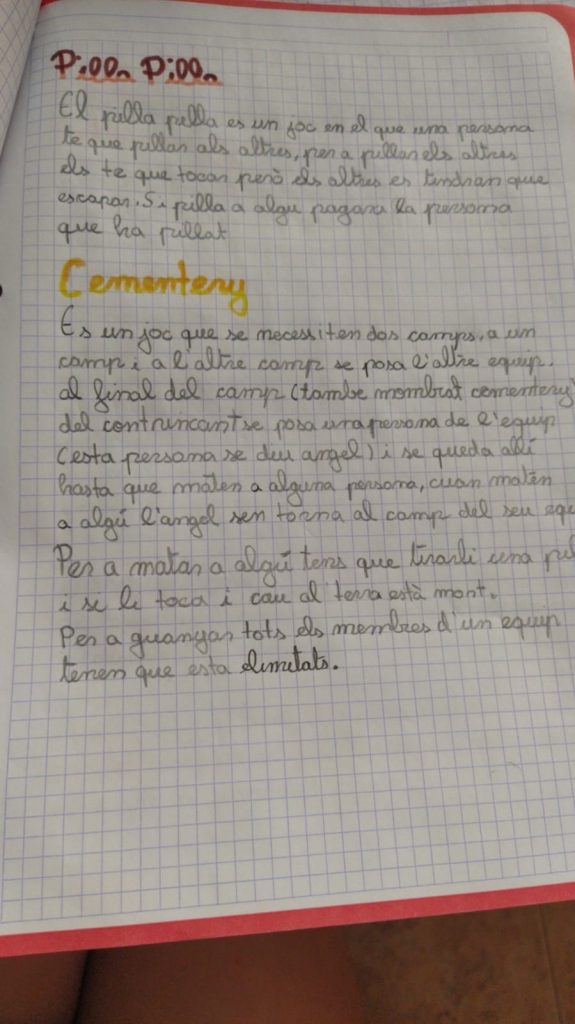 Pilla Pilla
El pilla pilla es un joc en el que una persona
te que pillar als altres, per a pillar els altres
els te que tocar però els altres es tindran que
escapar. Si pilla a algu pagara la persona
que ha pillat
Cementery
Es un joc que se necessiten dos camps, a un
camp i a l'altre camp se posa l'altre equip.
al final del camp (tambe nombrat cementery)
del contruncant se posa una persona de l'equip
(esta persona se diu angel) i se queda allí
hasta que maten a alguna persona, cuan maten
a algú l'angel sen torna al camp del seu equ
Per a matar a algú tens que tirarli una pi
i si li toca i cau al terra està mort.
Per a guanyar tots els membres d'un equip
tenen que esta elimitats.